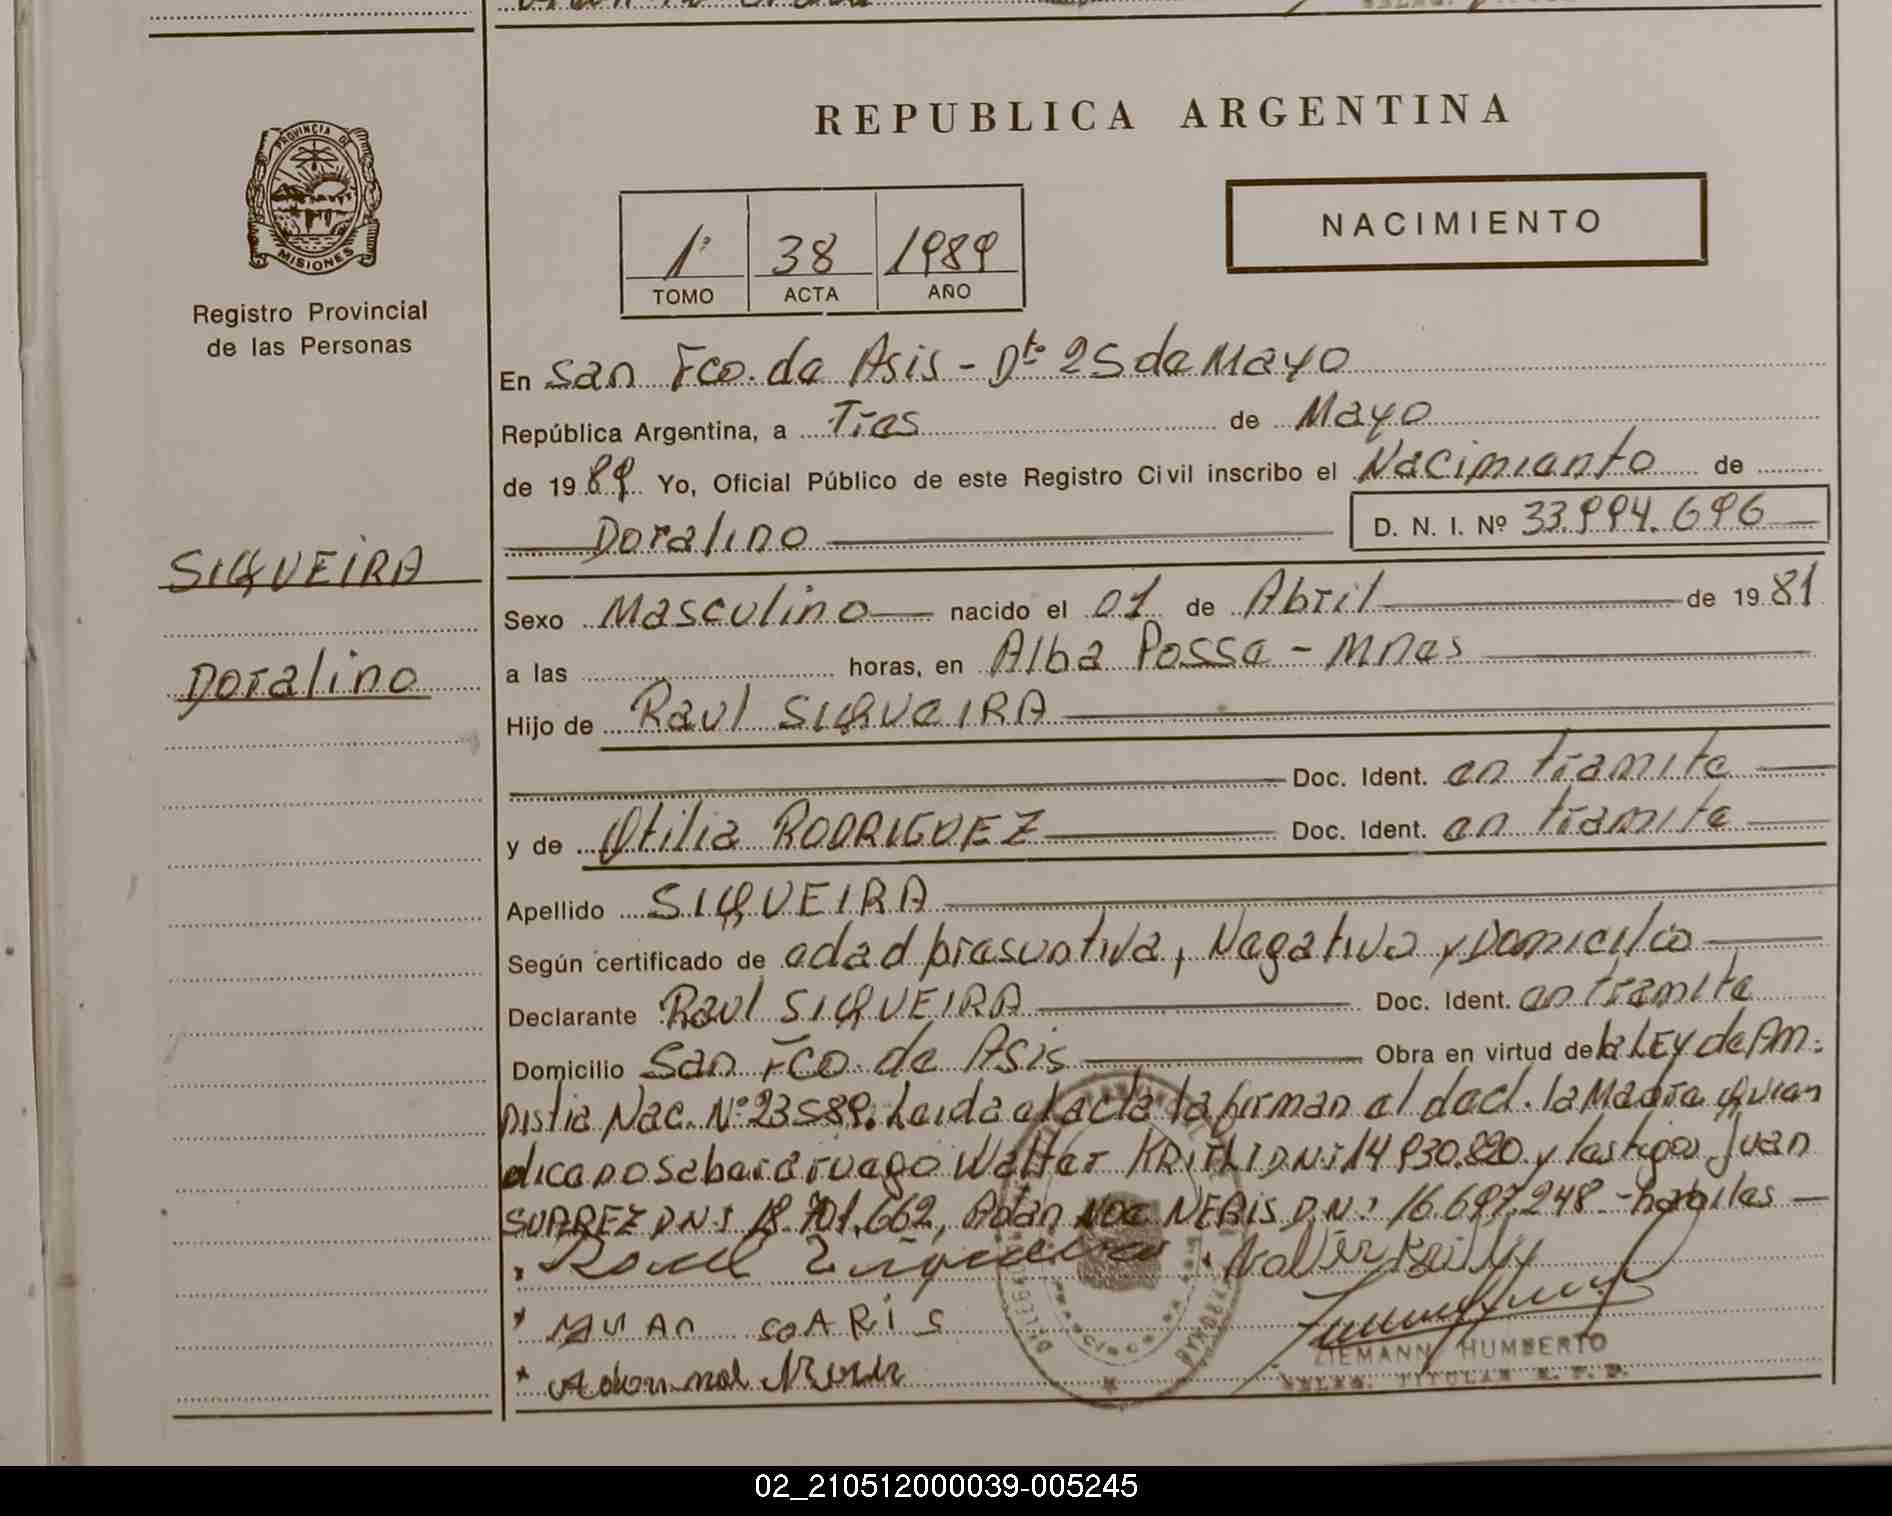 PROVINCIA DE
MISIONES
Registro Provincial
de las Personas
SIQUEIRA
Doralino
REPUBLICA ARGENTINA
NACIMIENTO
1º 38 1989
TOMO ACTA AÑO
En San Fco. de Asis - Dto 25 de Mayo
República Argentina, a Tres de Mayo
de 1989 Yo, Oficial Público de este Registro Civil inscribo el Nacimiento de
Doralino D. N. I. Nº 33.994.696
Sexo Masculino nacido el 01 de Abril de 1981
a las horas, en Alba Posse - Mnes
Hijo de Raul SIQUEIRA
Doc. Ident. en tramite
y de Otilia RODRIGUEZ Doc. Ident. en tramite
Apellido SIQUEIRA
Según certificado de edad presuntiva, Negativo y Domicilio
Declarante Raul SIQUEIRA Doc. Ident. en tramite
Domicilio San Fco. de Asis Obra en virtud de la LEY de Am-
nistia Nac. Nº 23589. Leida el acta la firman el decl. la Madre quien
dice no saber a ruego Walter DNI 14.930.820 y testigos Juan
SUAREZ DNI 18.701.662, Adan Noe NERIS DNI 16.697.248 - habiles
ZIEMANN HUMBERTO
DELEG. TITULAR R. P. P.
02_210512000039-005245